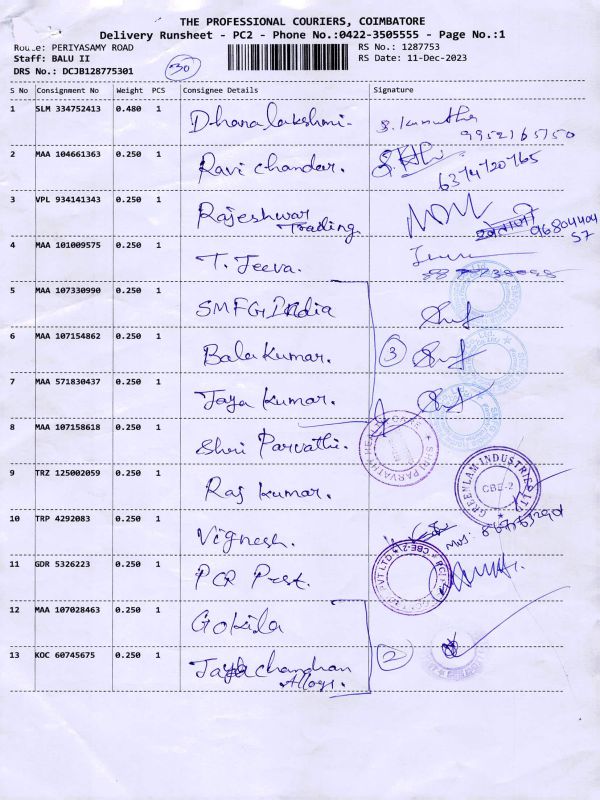 THE PROFESSIONAL COURIERS, COIMBATORE
Delivery Runsheet - PC2 - Phone No.:0422-3505555 - Page No.:1
Route: PERIYASAMY ROAD RS No.: 1287753
Staff: BALU II 30 RS Date: 11-Dec-2023
DRS No.: DCJB128775301
S No Consignment No Weight PCS Consignee Details Signature
1 SLM 334752413 0.480 1 Dhanalakshmi. S. Kavitha
9952165750
2 MAA 104661363 0.250 1 Ravi chander.
6374720765
3 VPL 934141343 0.250 1 Rajeshwar
Trading. 96804404
57
4 MAA 101009575 0.250 1 T. Jeeva.
5 MAA 107330990 0.250 1 SMFG India
6 MAA 107154862 0.250 1 Bala Kumar. 3
7 MAA 571830437 0.250 1 Jaya Kumar.
8 MAA 107158618 0.250 1 Shri Parvathi. SHRI PARVATHI HEALTH CARE
9 TRZ 125002059 0.250 1 Raj Kumar. GREENLAM INDUSTRIES LTD
CBE-2
10 TRP 4292083 0.250 1 Vignesh. MOB:
11 GDR 5326223 0.250 1 PCR Pest. PVT LTD CBE-2
12 MAA 107028463 0.250 1 Gokila
13 KOC 60745675 0.250 1 Jaya chandran 2
Alloys.